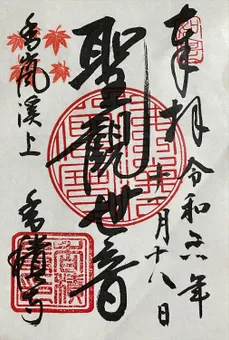 奉拝
令和六年
十一月十八日
聖観世音
香嵐渓上
香積寺